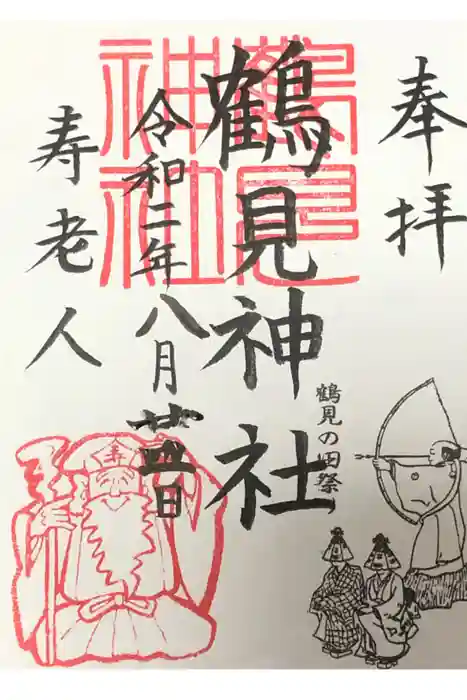 奉拝
鶴見神社
鶴見の田祭
令和二年八月廿五日
寿老人
鶴見
神社
寿